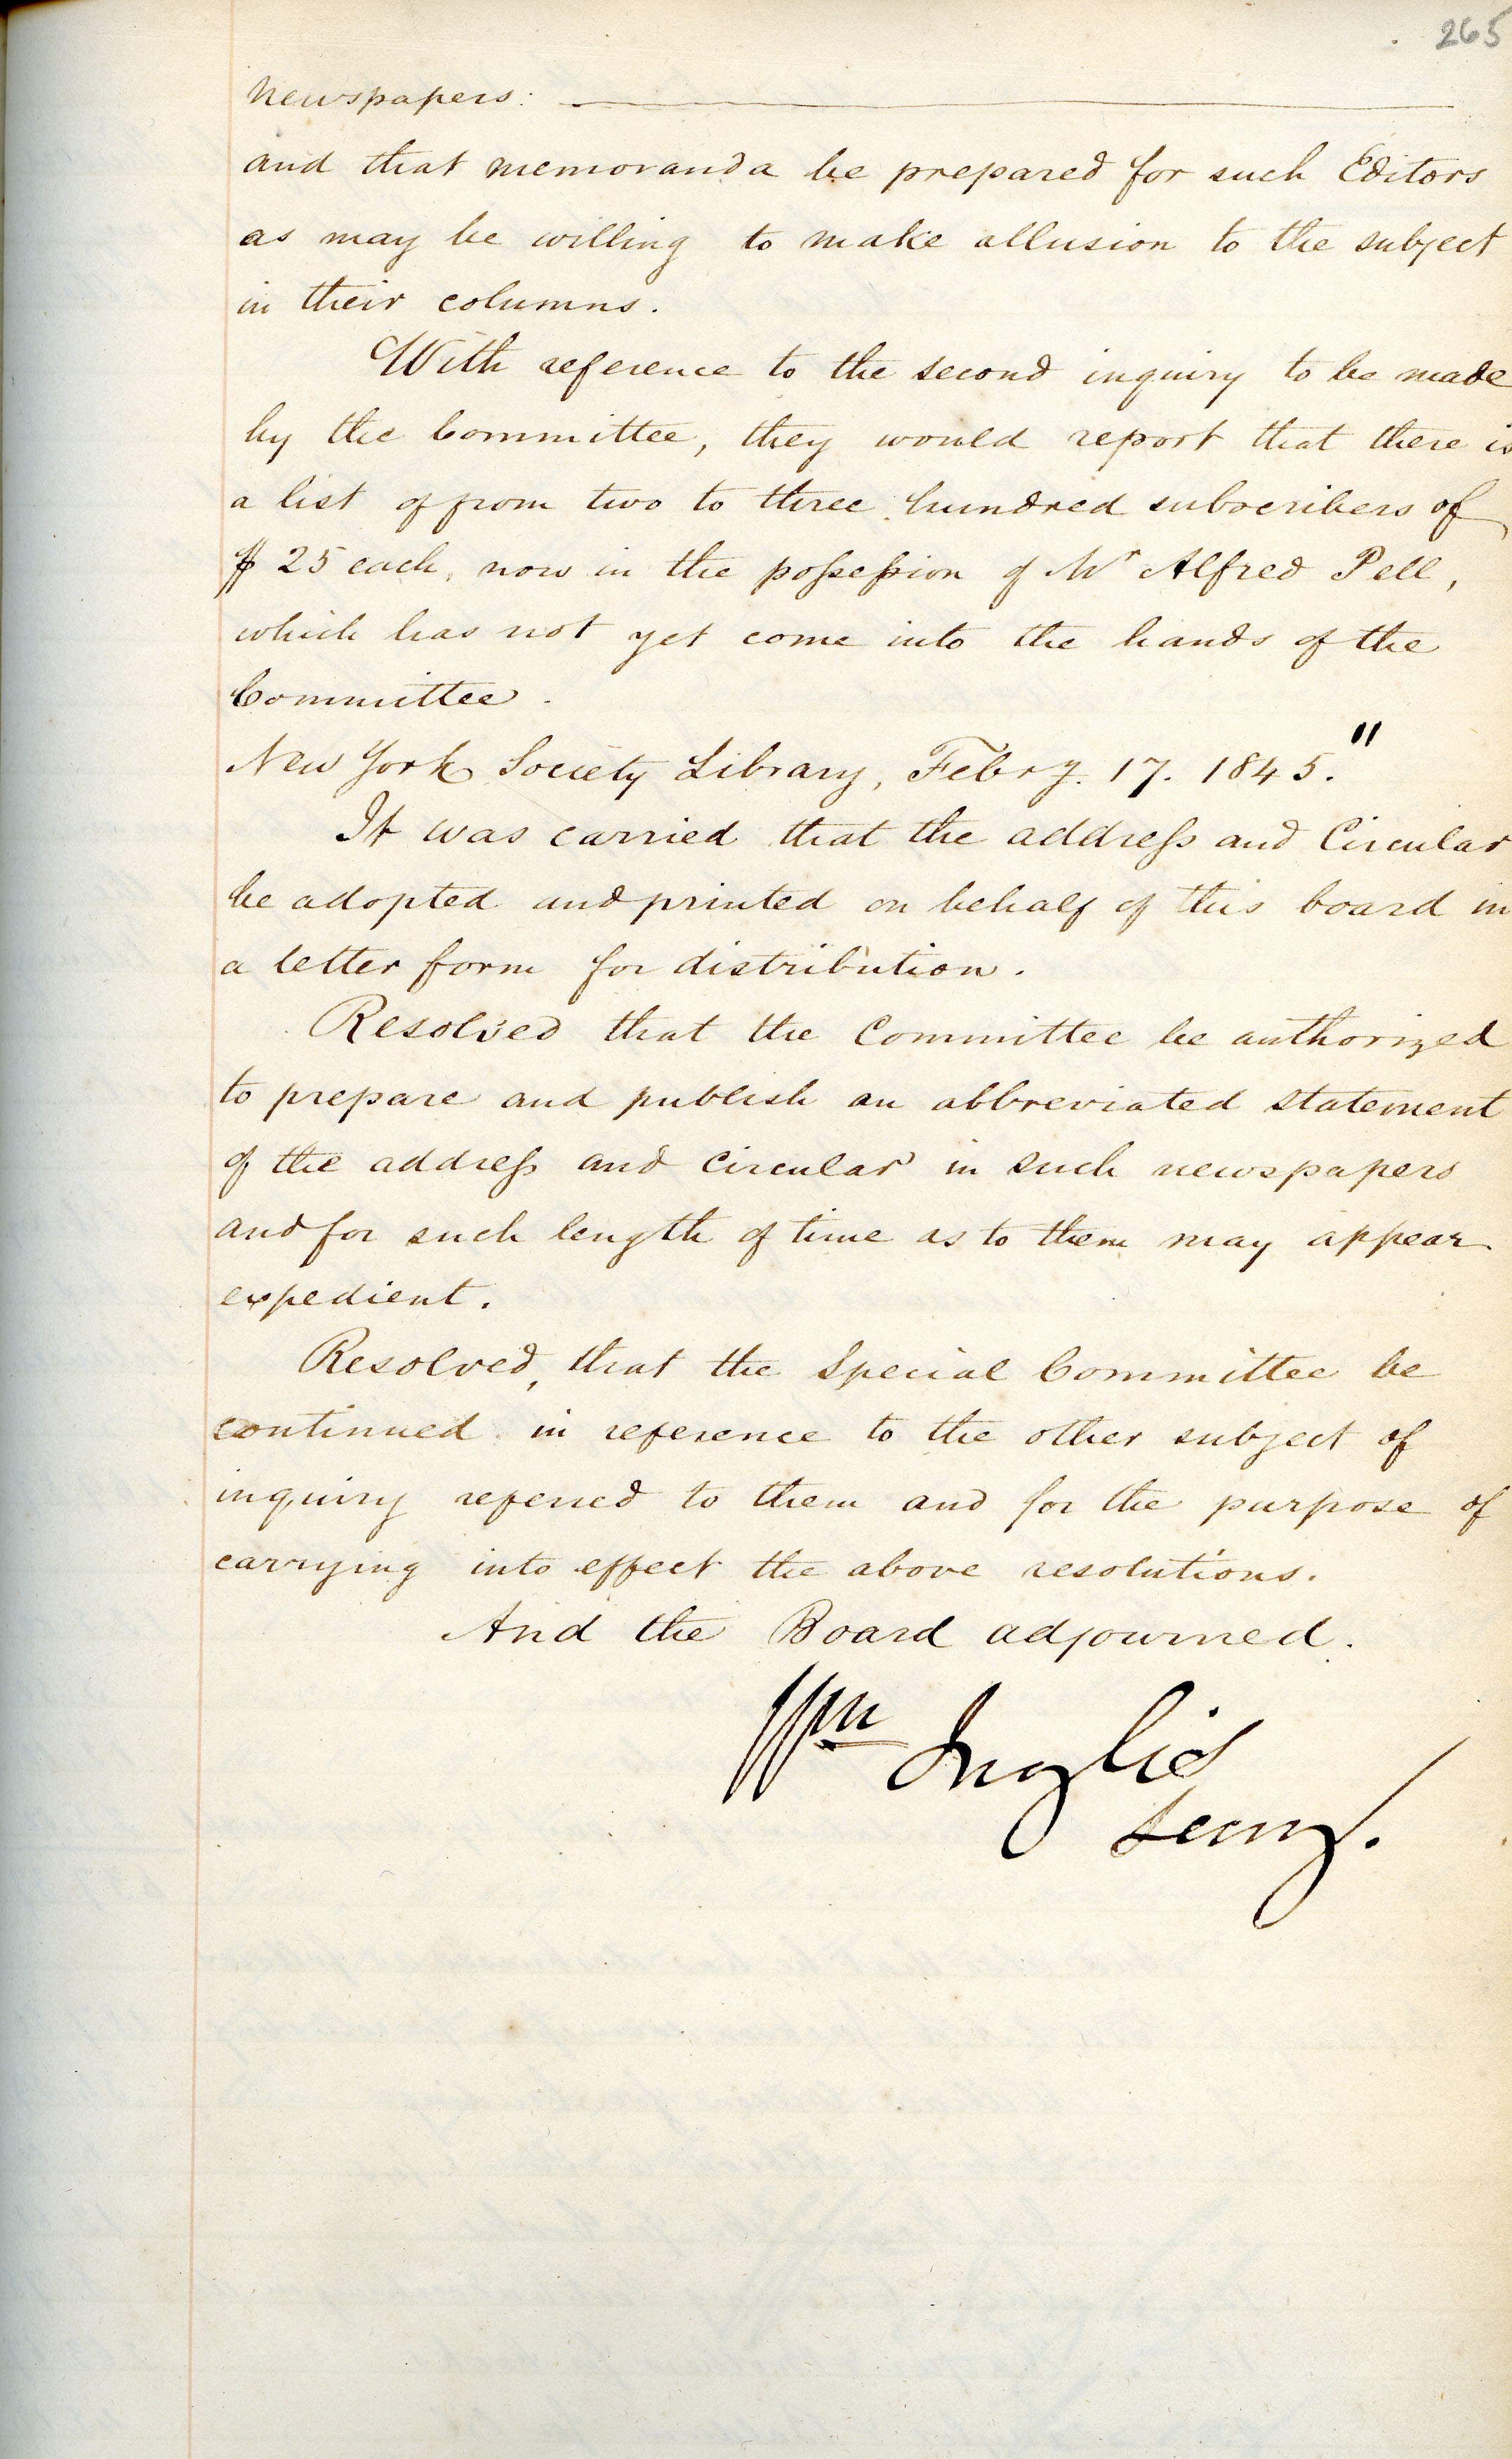 265
Newspapers:
and that memoranda be prepared for such Editors
as may be willing to make allusion to the subject
in their columns.
With reference to the second inquiry to be made
by the Committee, they would report that there is
a list of from two to three hundred subscribers of
$25 each, now in the possession of Mr Alfred Pell,
which has not yet come into the hands of the
Committee.
New York Society Library, Febry. 17. 1845."
It was carried that the address and Circular
be adopted and printed on behalf of this board in
a letter form for distribution.
Resolved that the Committee be authorized
to prepare and publish an abbreviated statement
of the address and circular in such newspapers
and for such length of time as to them may appear
expedient.
Resolved, that the Special Committee be
continued in reference to the other subject of
inquiry referred to them and for the purpose of
carrying into effect the above resolutions.
And the Board adjourned.
Wm Inglis
Secry.